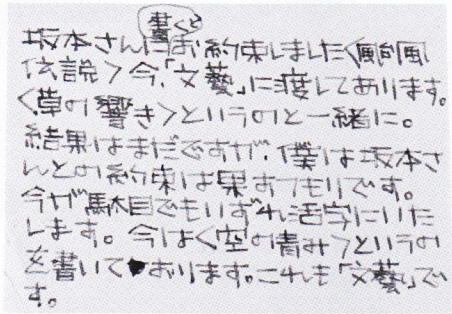 書くと
坂本さんにお約束しました<颱風
伝説>今、「文藝」に渡してあります。
<草の響き>というのと一緒に。
結果はまだですが、僕は坂本さ
んとの約束は果すつもりです。
今が駄目でもいずれ活字にいた
します。今は<空の青み>というの
を書いております。これも「文藝」で
す。